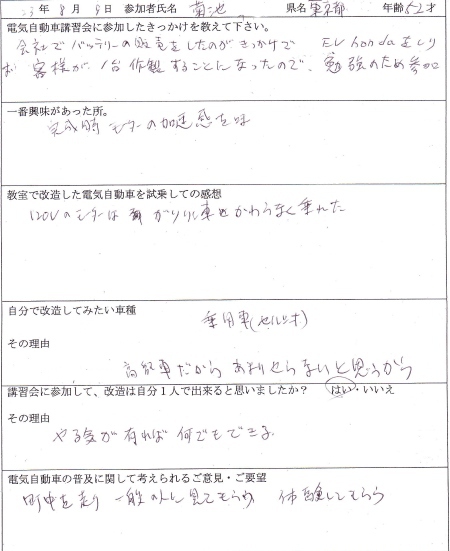 23年 8月 9日 参加者氏名 菊池 県名 東京都 年齢 52才
電気自動車講習会に参加したきっかけを教えて下さい。
会社でバッテリーの販売をしたのがきっかけで EV hondaをしり
お客様が1台作製することになったので、勉強のため参加
一番興味があった所。
完成時 モーターの加速感を味
教室で改造した電気自動車を試乗しての感想
120Vのモーターは ガソリン車とかわりなく乗れた
自分で改造してみたい車種
乗用車(セルシオ)
その理由
高級車だから あまりせらないと思うから
講習会に参加して、改造は自分1人で出来ると思いましたか? はい・いいえ
その理由
やる気が有れば何でもできる
電気自動車の普及に関して考えられるご意見・ご要望
町中を走り 一般の人に見てもらう 体験してもらう